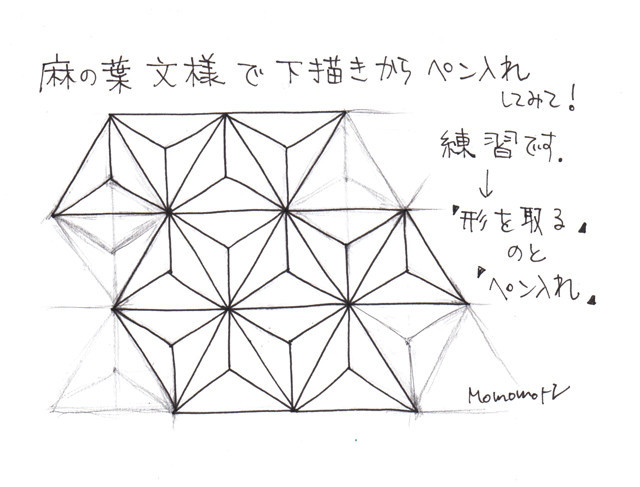 麻の葉 文様 で 下描きから ペン入れ
してみて！
練習です.
↓
「形を取る」
のと
「ペン入れ」